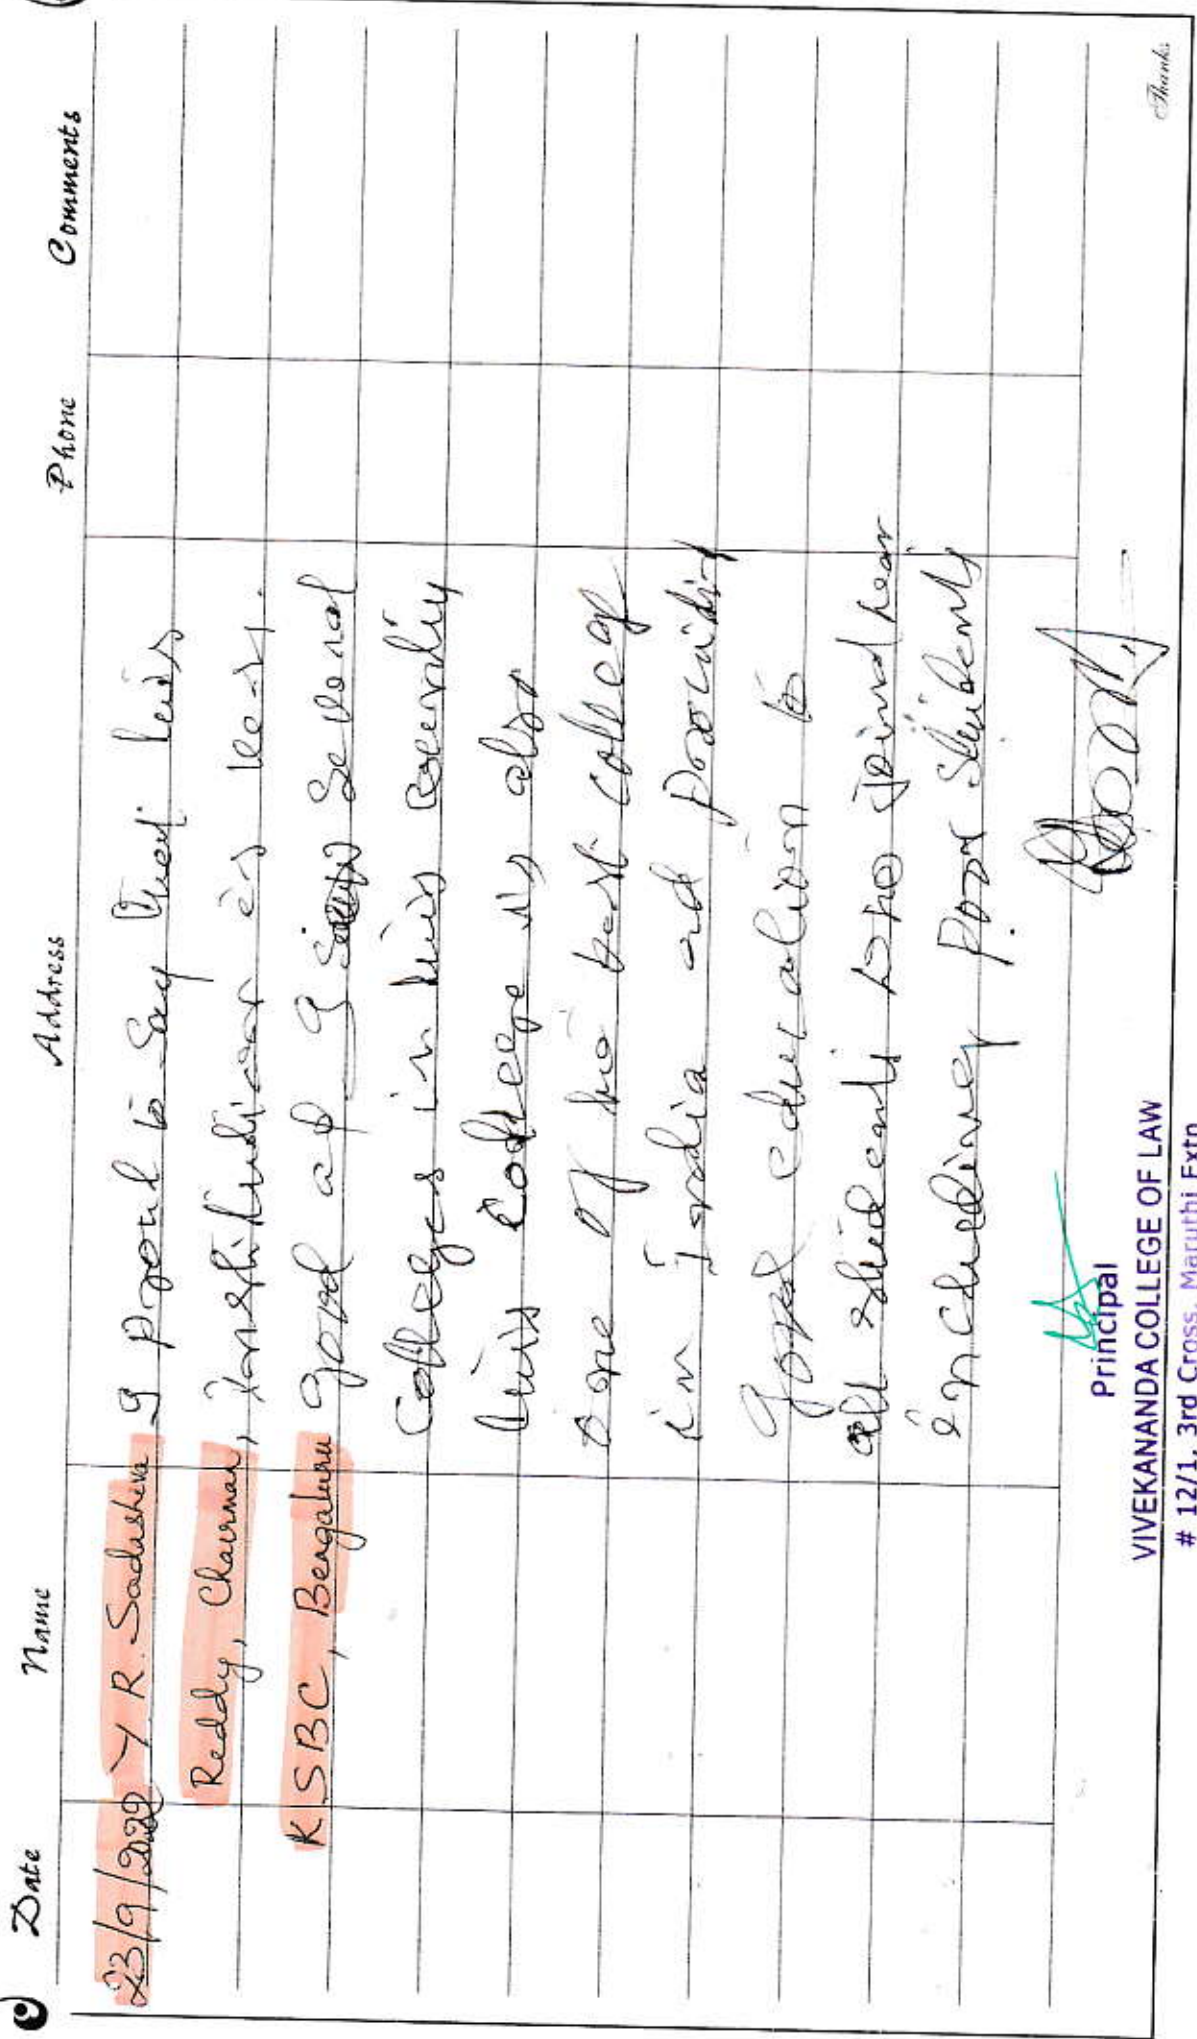 Date Name Address Phone Comments
23/9/2022 Y. R. Sadashiva I proud to say that this
Reddy, Chairman, Institution is very
KSBC, Bengaluru good and I several
Colleges in this country
this College is also
one of the best college
in India and providing
good education to
all students who joined hear
including poor students
Principal
VIVEKANANDA COLLEGE OF LAW
# 12/1, 3rd Cross, Maruthi Extn
Thanks